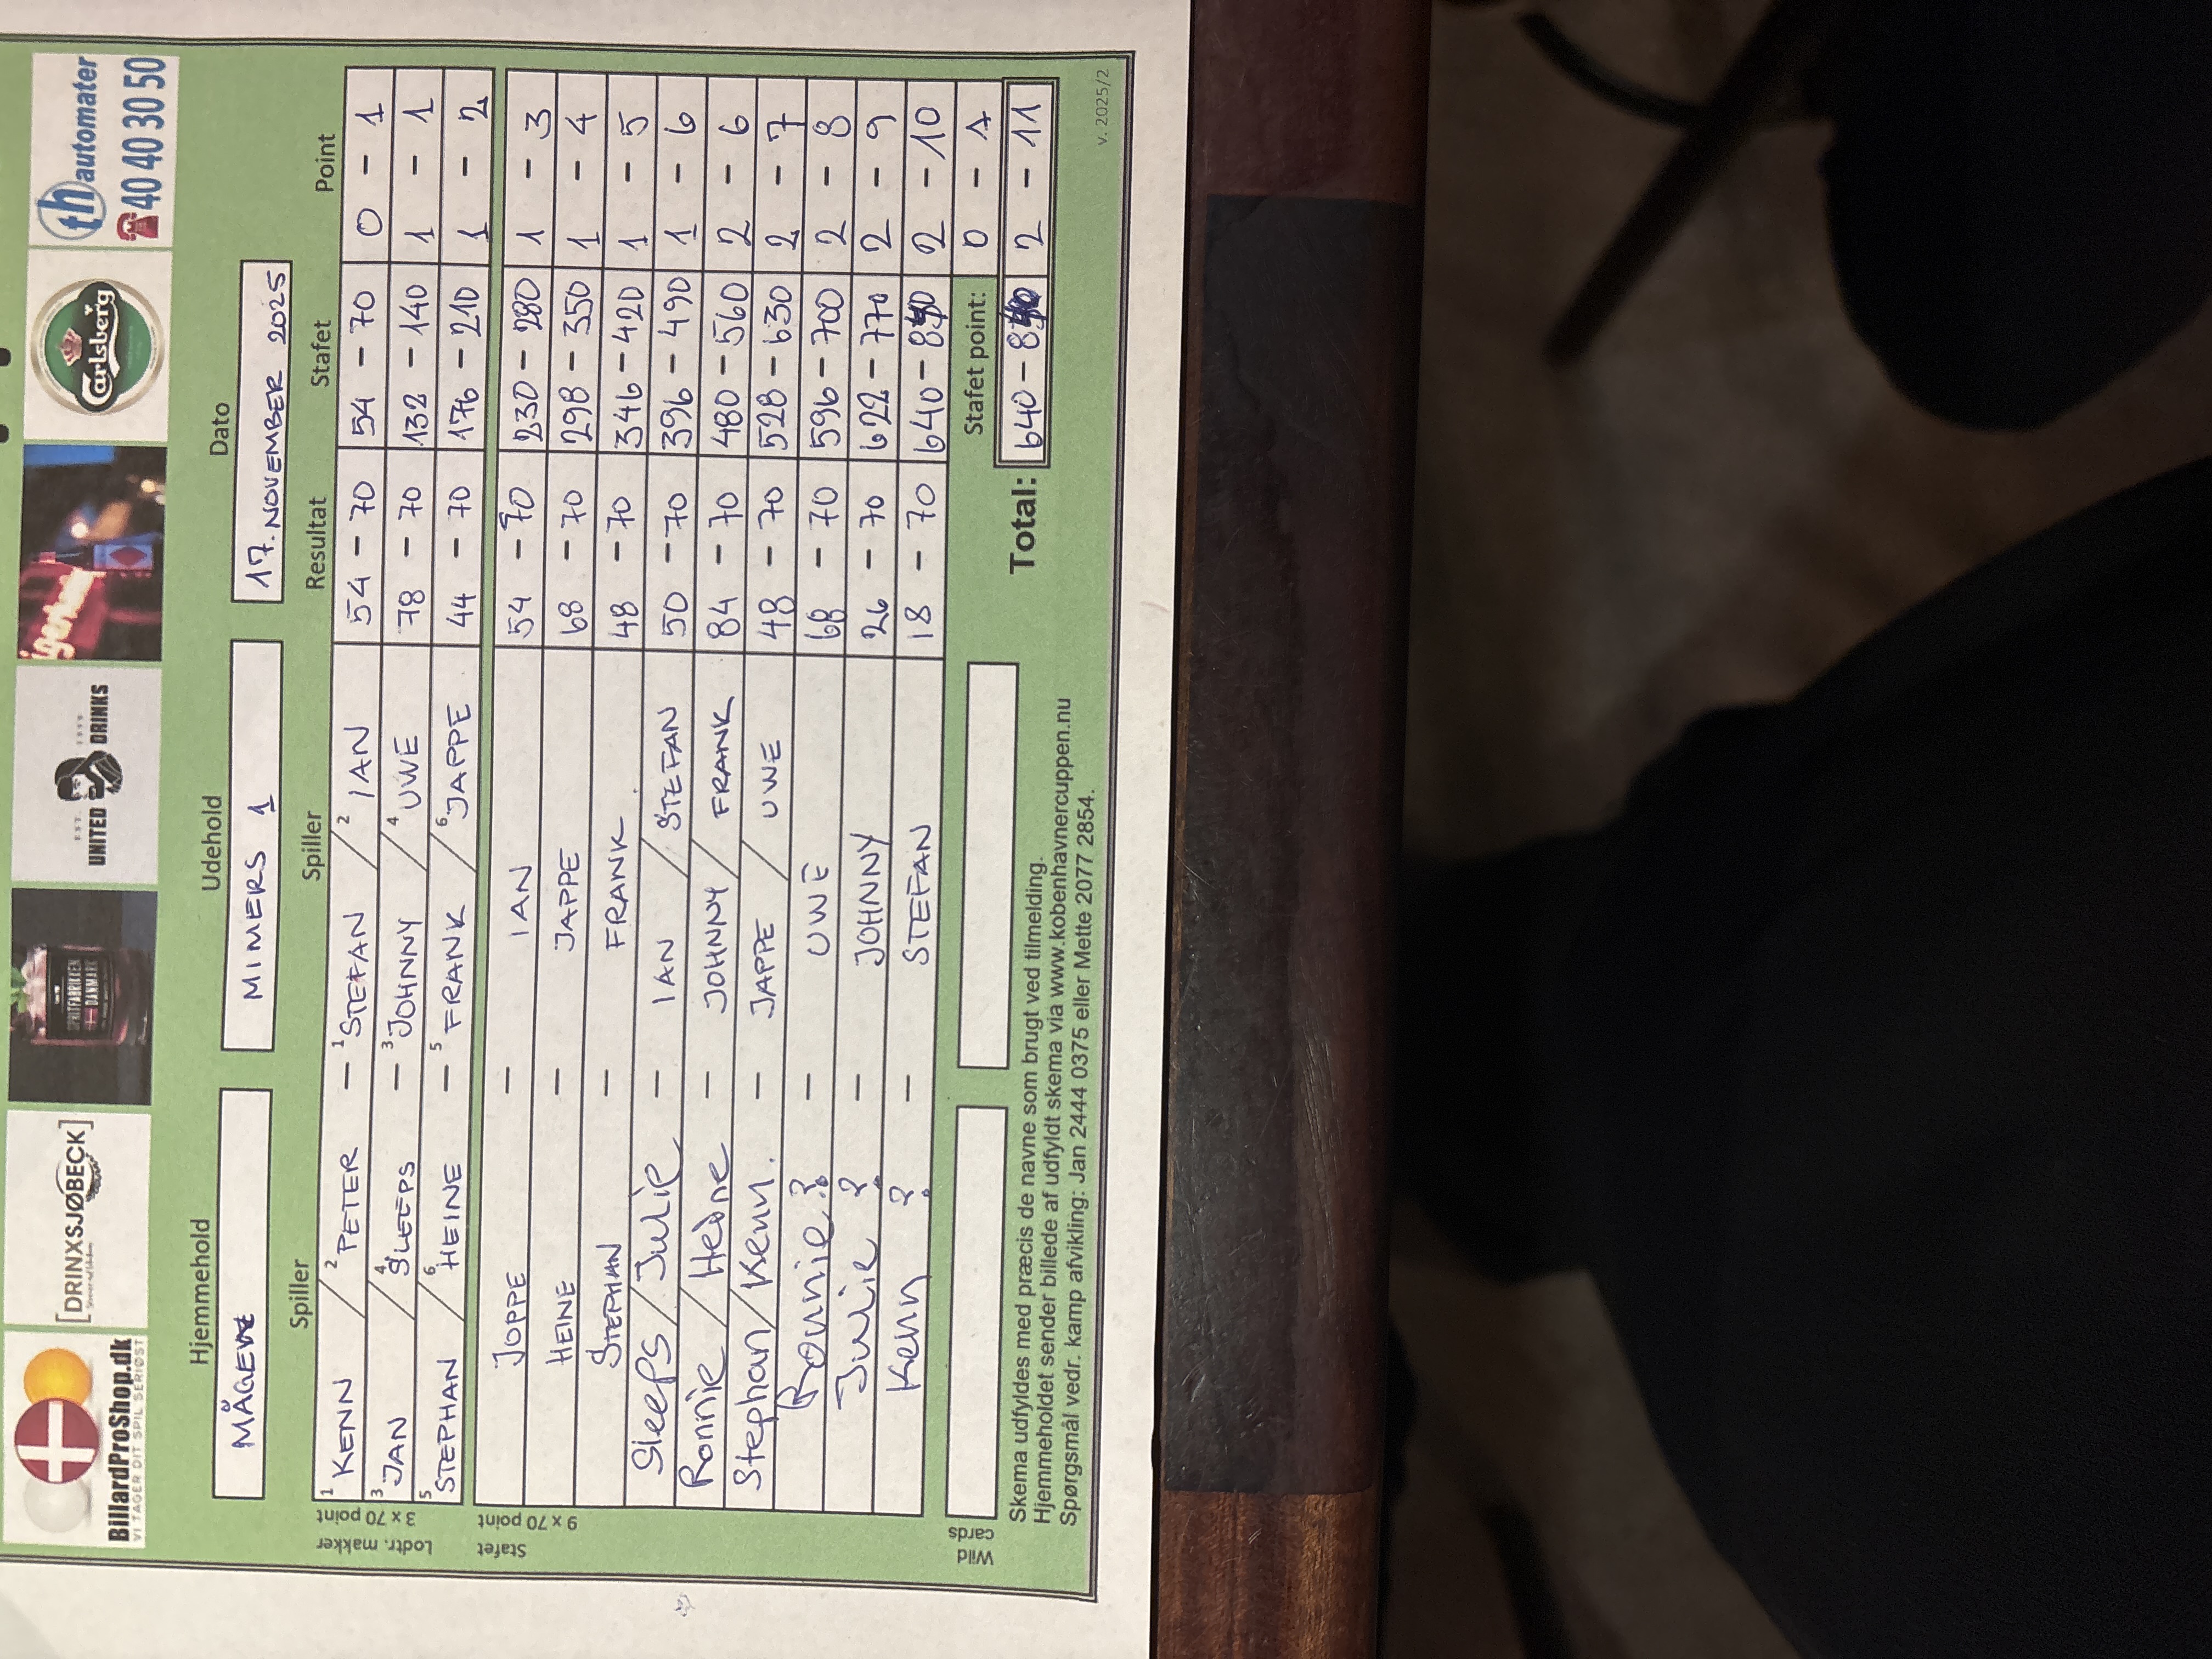 BillardProShop.dk
VI TAGER DIT SPIL SERIØST
[DRINXSJØBECK]
SPRITFABRIKKEN
DANMARK
EST. 1999
UNITED DRINKS
Carlsberg
th automater
☎40 40 30 50
Hjemmehold Udehold Dato
MÅGEVE MIMERS 1 17. NOVEMBER 2025
Spiller Spiller Resultat Stafet Point
Lodtr. makker
3 x 70 point
1 KENN / 2 PETER – 1 STEFAN / 2 IAN 54 – 70 54 – 70 0 – 1
3 JAN / 4 SLEEPS – 3 JOHNNY / 4 UWE 78 – 70 132 – 140 1 – 1
5 STEPHAN / 6 HEINE – 5 FRANK / 6 JAPPE 44 – 70 176 – 210 1 – 2
Stafet
9 x 70 point
JOPPE – IAN 54 – 70 230 – 280 1 – 3
HEINE – JAPPE 68 – 70 298 – 350 1 – 4
STEPHAN – FRANK 48 – 70 346 – 420 1 – 5
Sleeps / Julie – IAN / STEFAN 50 – 70 396 – 490 1 – 6
Ronnie / Heine – JOHNNY / FRANK 84 – 70 480 – 560 2 – 6
Stephan / Kenn. – JAPPE / UWE 48 – 70 528 – 630 2 – 7
Ronnie ? – UWE 68 – 70 596 – 700 2 – 8
Julie ? – JOHNNY 26 – 70 622 – 770 2 – 9
Kenn ? – STEFAN 18 – 70 640 – 840 2 – 10
Wild cards
Stafet point: 0 – 1
Total: 640 – 840 2 – 11
Skema udfyldes med præcis de navne som brugt ved tilmelding.
Hjemmeholdet sender billede af udfyldt skema via www.kobenhavnercuppen.nu
Spørgsmål vedr. kamp afvikling: Jan 2444 0375 eller Mette 2077 2854.
v. 2025/2